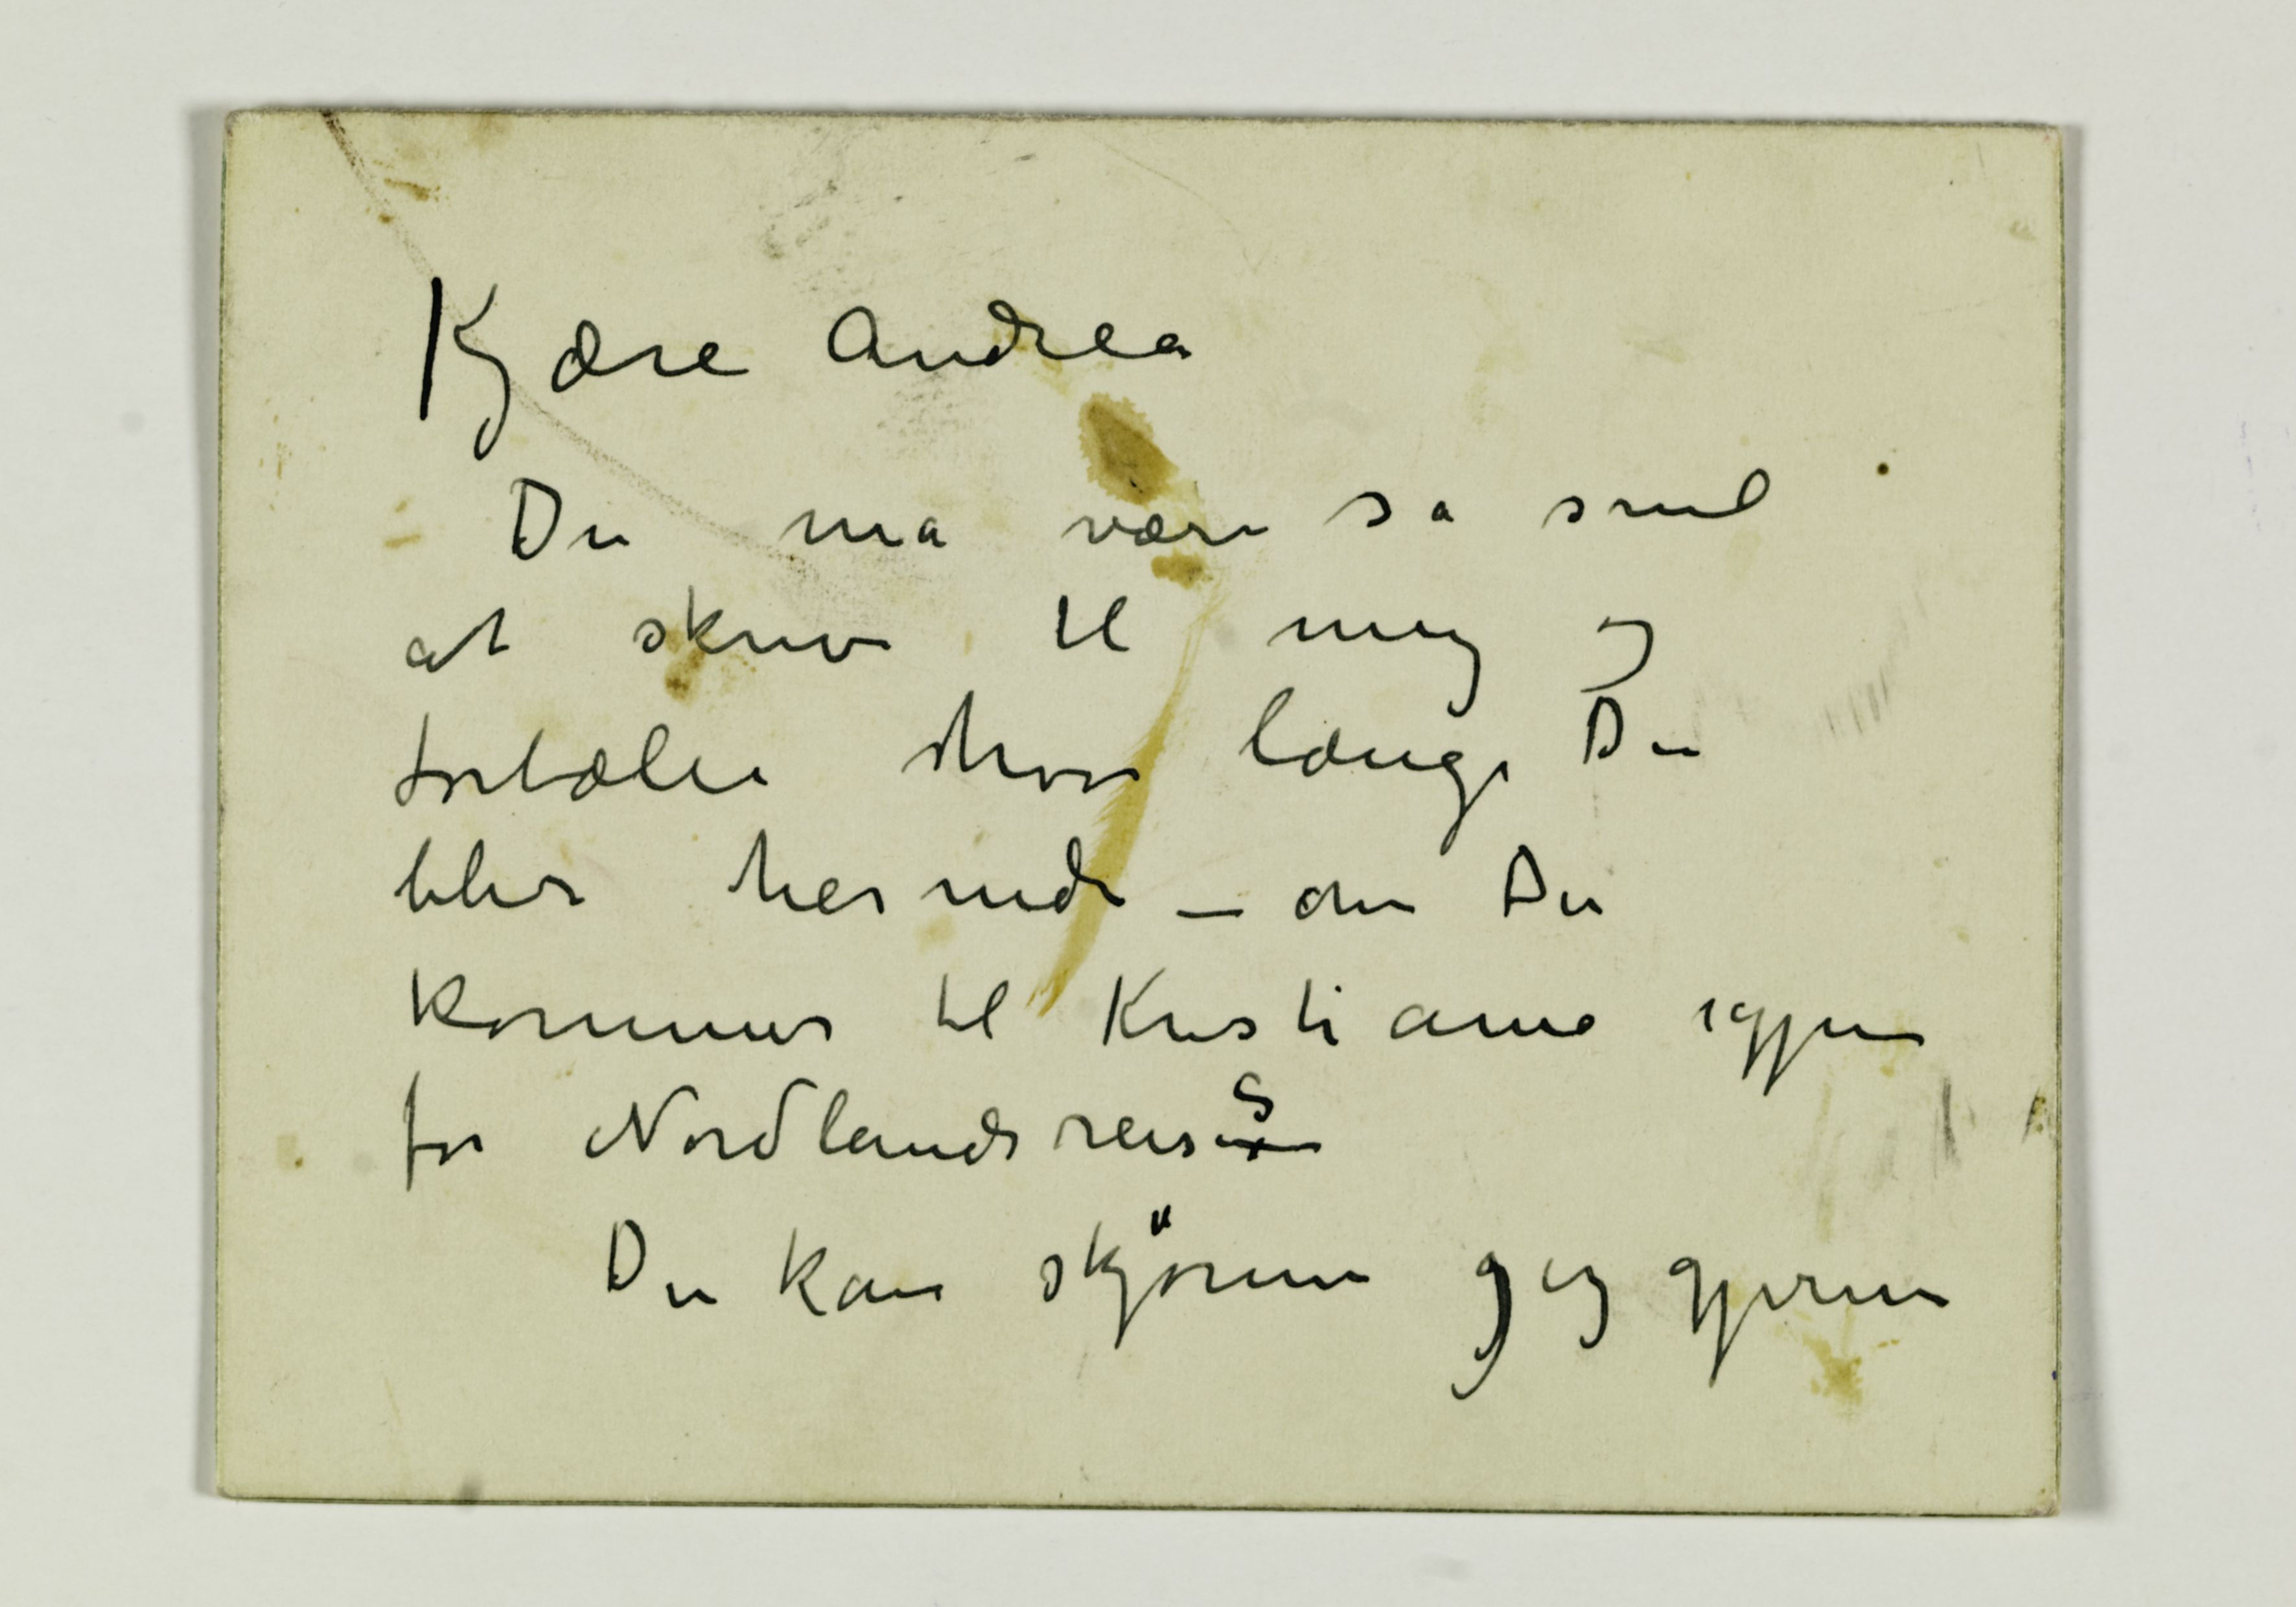 Kjære Andrea
Du må være så snil
at skrive til meg og
fortælle hvor længe Du
blir her nede – om Du
kommer til Kristiania igjen
for Nordlandsreisen
Du kan skjønne jeg gjerne